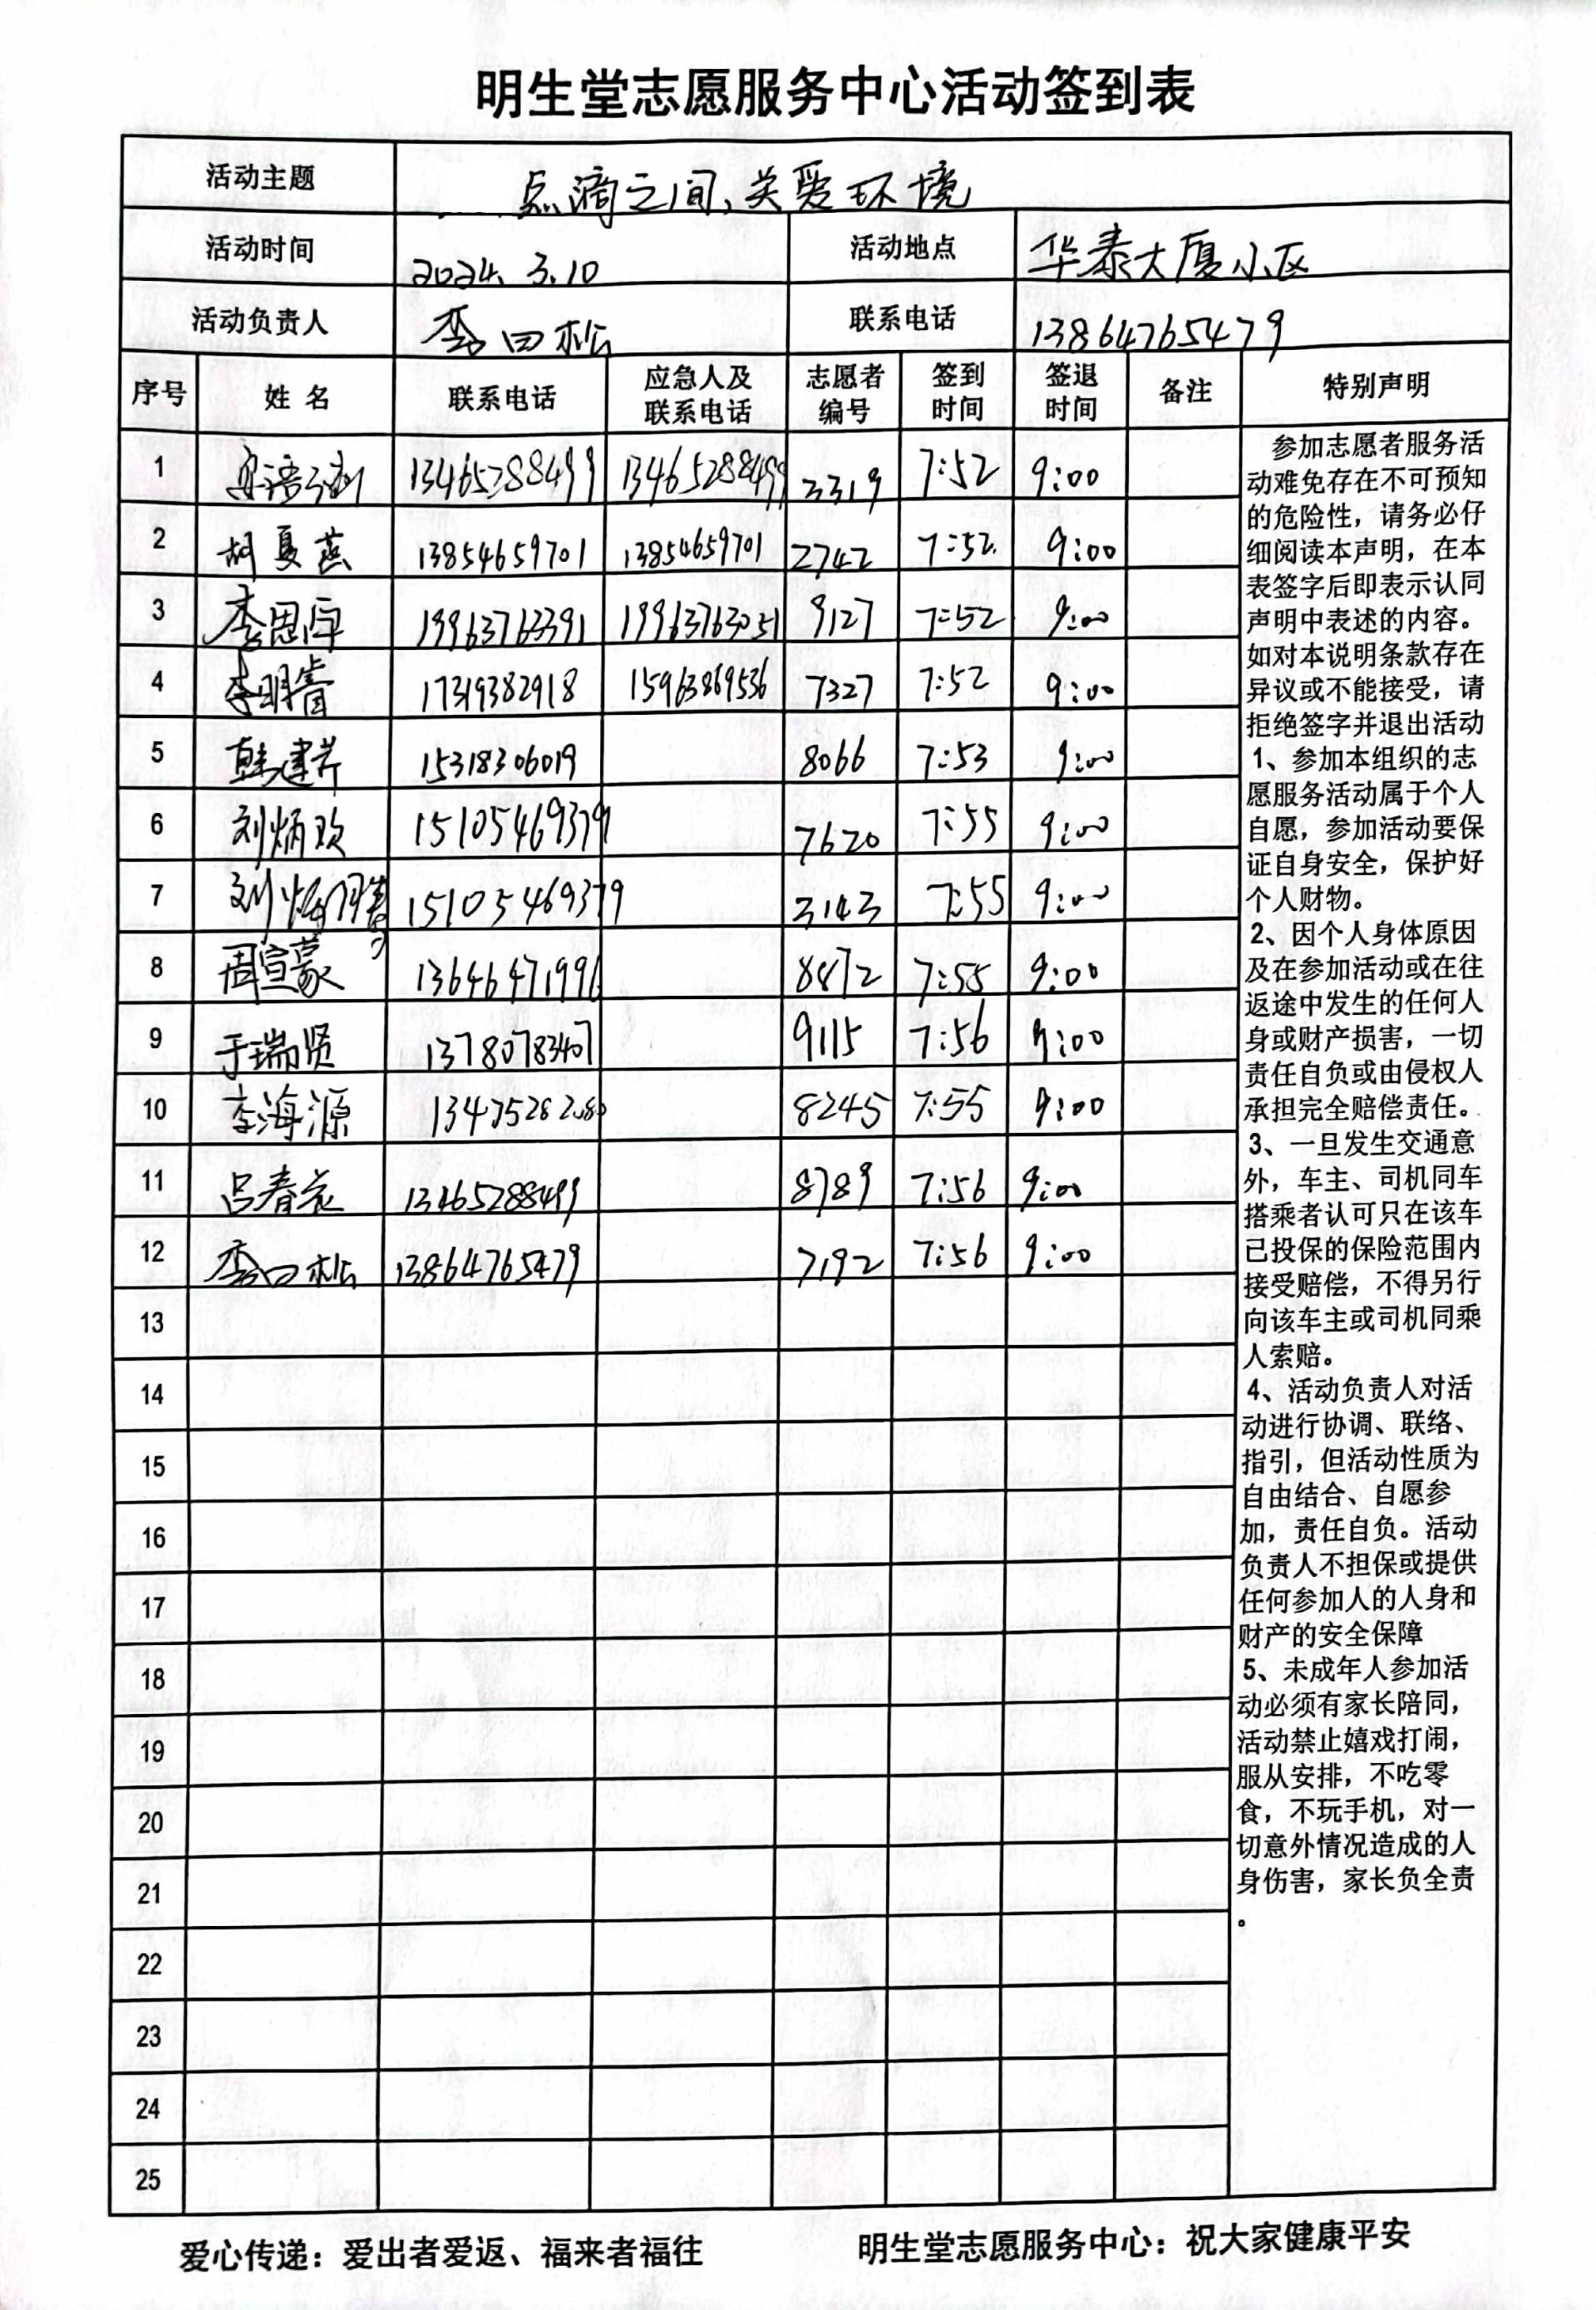 明生堂志愿服务中心活动签到表
活动主题 点滴之间,关爱环境
活动时间 2024.3.10 活动地点 华泰大厦小区
活动负责人 李四松 联系电话 13864765479
序号 姓名 联系电话 应急人及联系电话 志愿者编号 签到时间 签退时间 备注 特别声明
1 13465288499 13465288499 3319 7:52 9:00
2 胡夏燕 13854659701 13854659701 2742 7:52 9:00
3 李思厚 19963763391 19963763051 9127 7:52 9:00
4 李明睿 17319382918 15963869536 7327 7:52 9:00
5 韩建芹 15318306019 8066 7:53 9:00
6 刘炳政 15105469379 7620 7:55 9:00
7 15105469379 3143 7:55 9:00
8 周宣蒙 13646471996 8872 7:55 9:00
9 于瑞贤 13780783407 9115 7:56 9:00
10 李海源 8245 7:55 9:00
11 吕春花 13465288499 8789 7:56 9:00
12 李四松 13864765479 7192 7:56 9:00
13
14
15
16
17
18
19
20
21
22
23
24
25
参加志愿者服务活
动难免存在不可预知
的危险性，请务必仔
细阅读本声明，在本
表签字后即表示认同
声明中表述的内容。
如对本说明条款存在
异议或不能接受，请
拒绝签字并退出活动
1、参加本组织的志
愿服务活动属于个人
自愿，参加活动要保
证自身安全，保护好
个人财物。
2、因个人身体原因
及在参加活动或在往
返途中发生的任何人
身或财产损害，一切
责任自负或由侵权人
承担完全赔偿责任。
3、一旦发生交通意
外，车主、司机同车
搭乘者认可只在该车
已投保的保险范围内
接受赔偿，不得另行
向该车主或司机同乘
人索赔。
4、活动负责人对活
动进行协调、联络、
指引，但活动性质为
自由结合、自愿参
加，责任自负。活动
负责人不担保或提供
任何参加人的人身和
财产的安全保障
5、未成年人参加活
动必须有家长陪同，
活动禁止嬉戏打闹，
服从安排，不吃零
食，不玩手机，对一
切意外情况造成的人
身伤害，家长负全责
。
爱心传递：爱出者爱返、福来者福往 明生堂志愿服务中心：祝大家健康平安